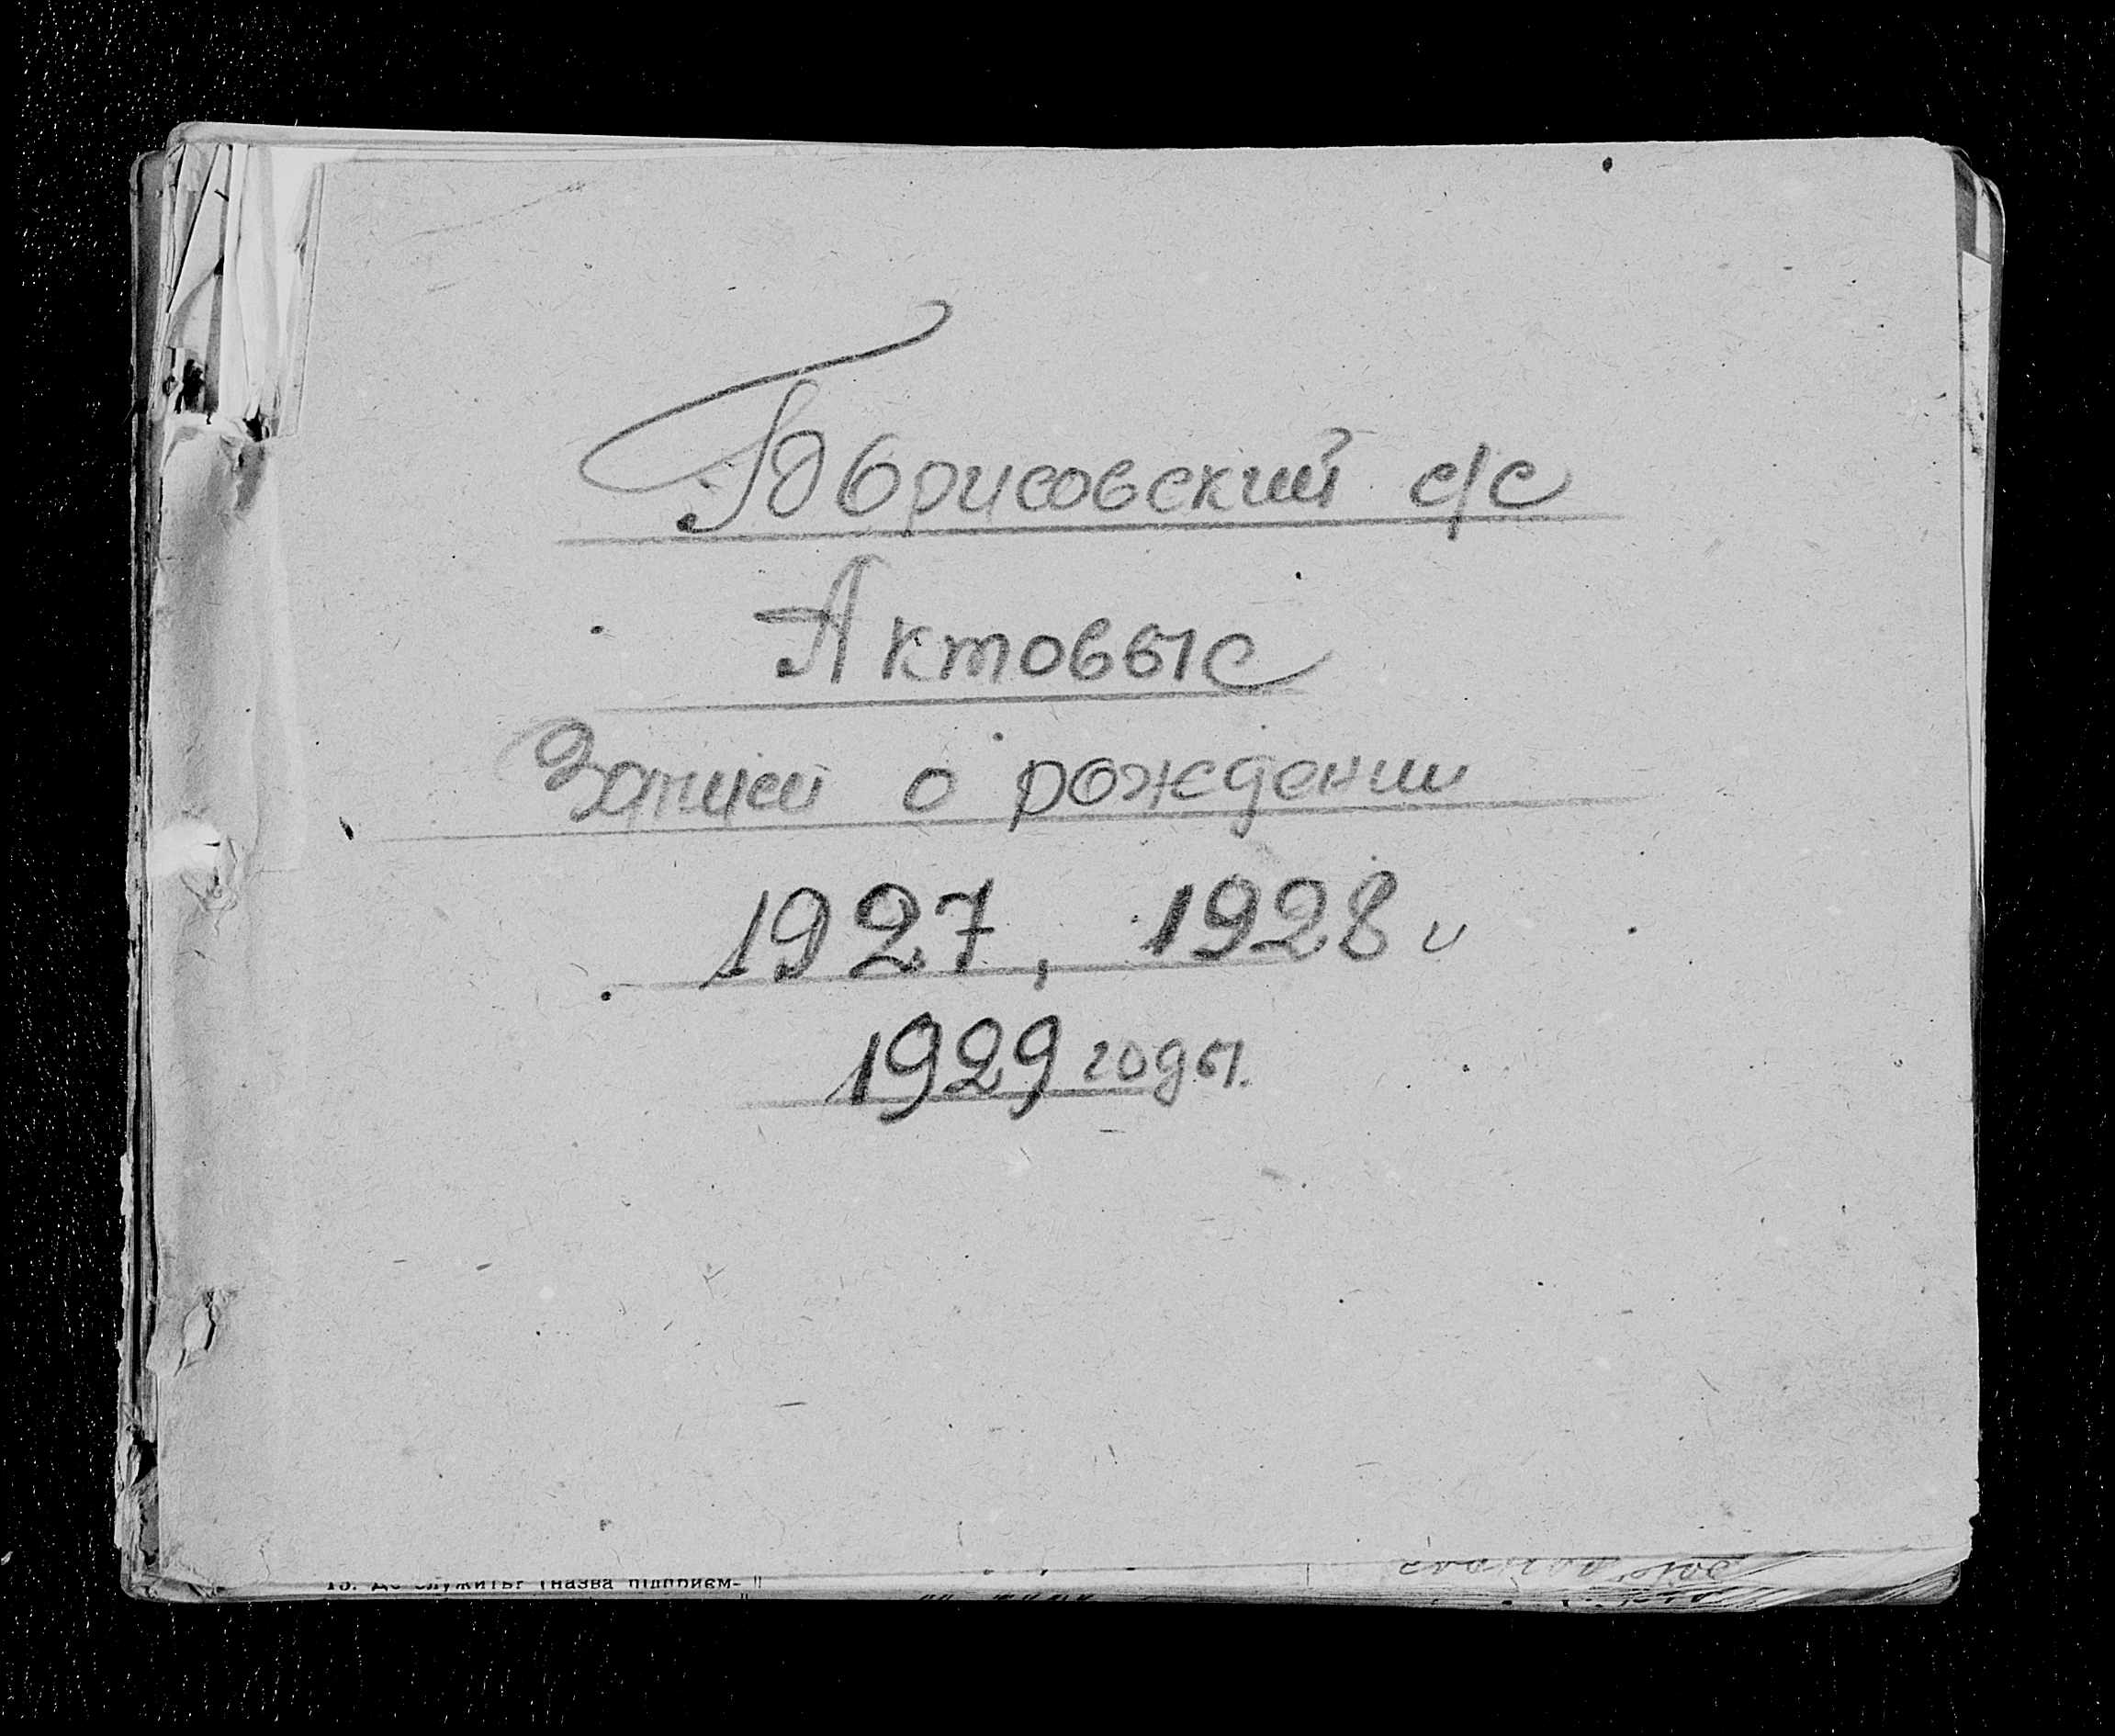 Борисовский с/с
Актовые
Записи о рождении
1927, 1928 и
1929 годы.
Де служить? (назва підприєм-